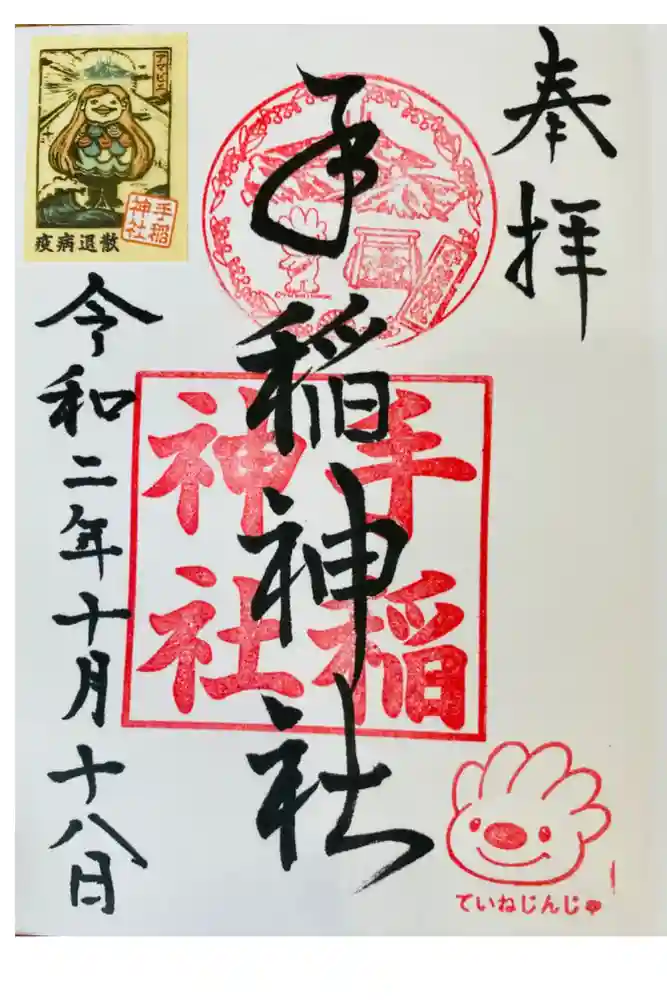 奉拝
手稲神社
手稲
神社
ていねじんじゃ
アマビエ
手稲
神社
疫病退散
令和二年十月十八日